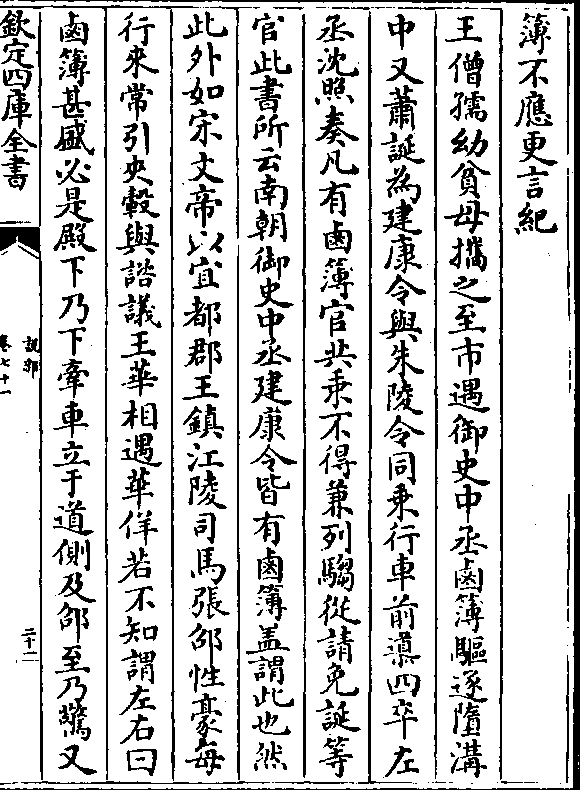 簿不應更言紀
王僧孺幼貧母攜之至市遇御史中丞鹵簿驅逐墮溝
中又蕭誕為建康令與朱陵令同乗行車前導四卒左
丞沈照奏凡有鹵簿官共乗不得兼列騶從請免誕等
官此書所云南朝御史中丞建康令皆有鹵簿蓋謂此也然
此外如宋文帝以宜都郡王鎮江陵司馬張邵性豪每
行來常引夾轂與諮議王華相遇華佯若不知謂左右曰
鹵簿甚盛必是殿下乃下牽車立于道側及邵至乃驚又
欽定四庫全書
說郛
卷七十一
二十二